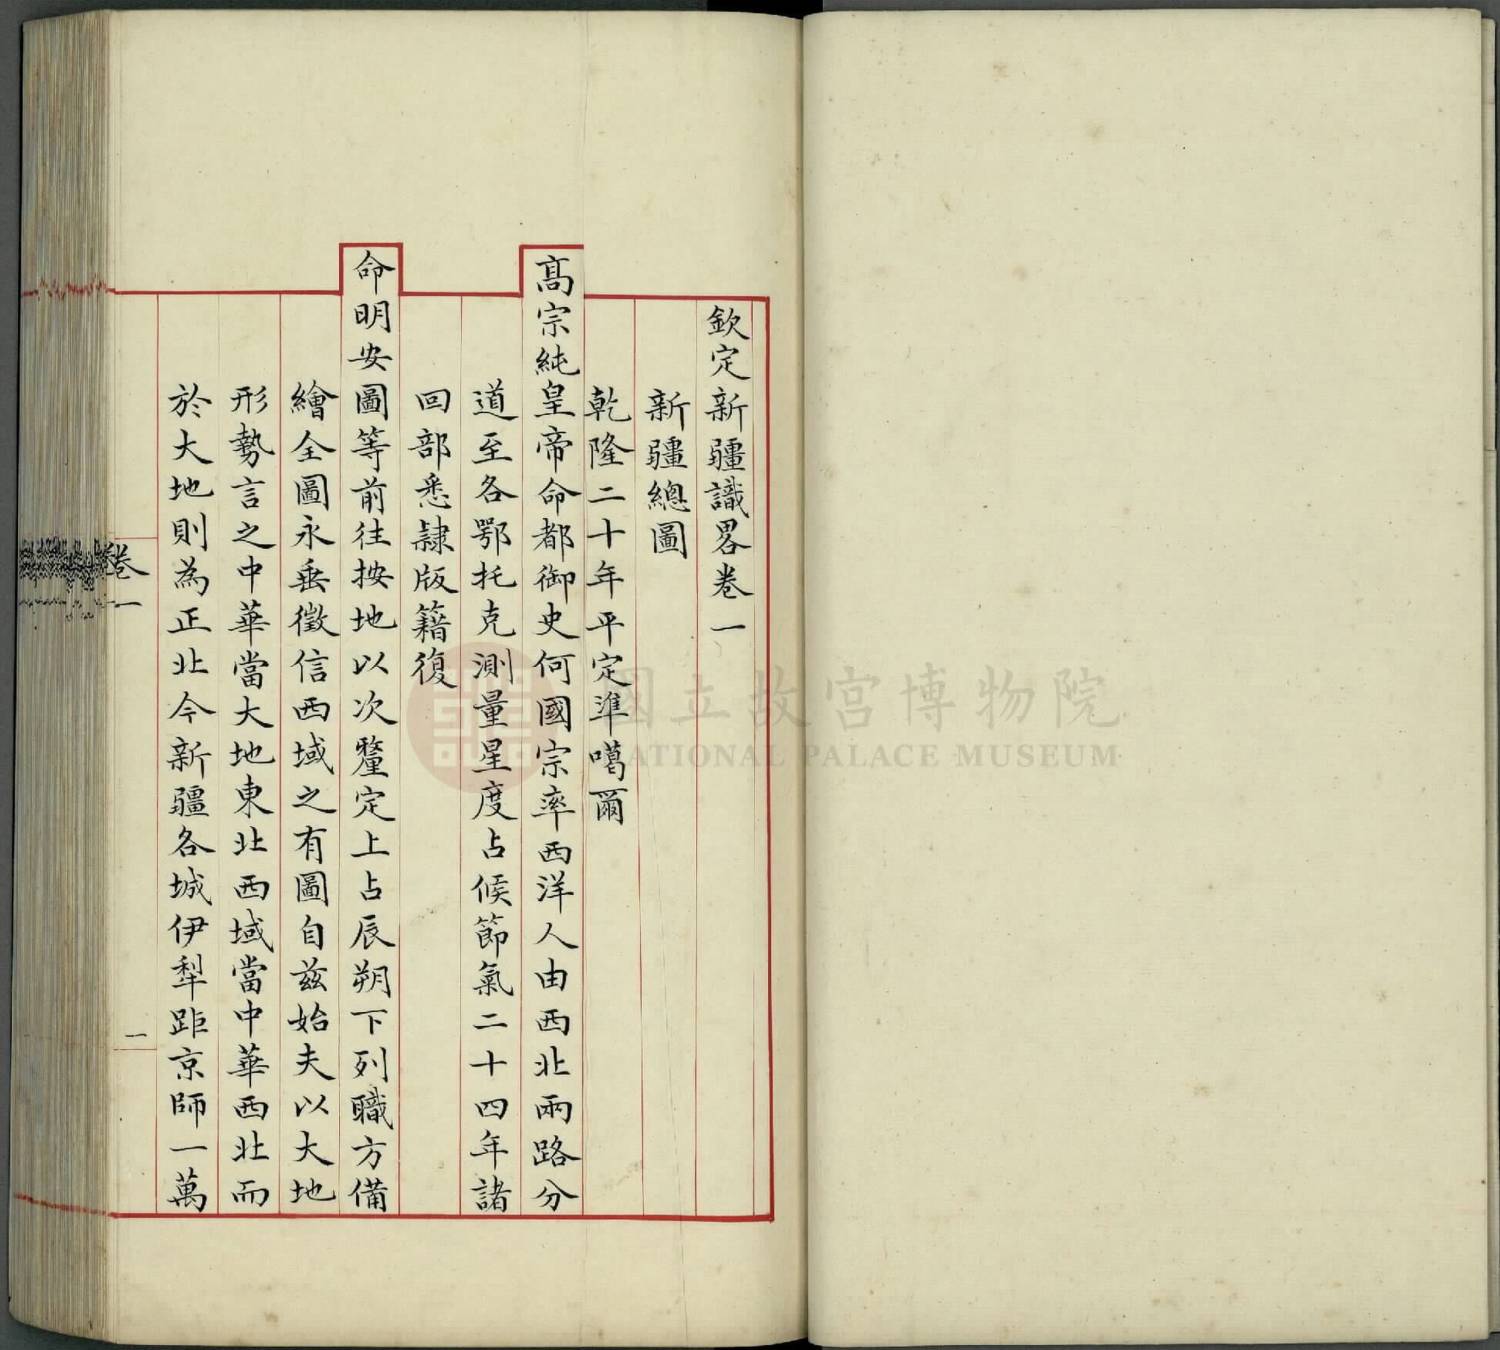 欽定新疆識畧卷一
新疆總圖
乾隆二十年平定準噶爾
髙宗純皇帝命都御史何國宗率西洋人由西北兩路分
道至各鄂托克測量星度占候節氣二十四年諸
回部悉隷版籍復
命明安圖等前往按地以次釐定上占辰朔下列職方備
繪全圖永垂徵信西域之有圖自茲始夫以大地
形勢言之中華當大地東北西域當中華西北而
於大地則為正北今新疆各城伊犁距京師一萬
卷一
一
國立故宮博物院
NATIONAL PALACE MUSEUM